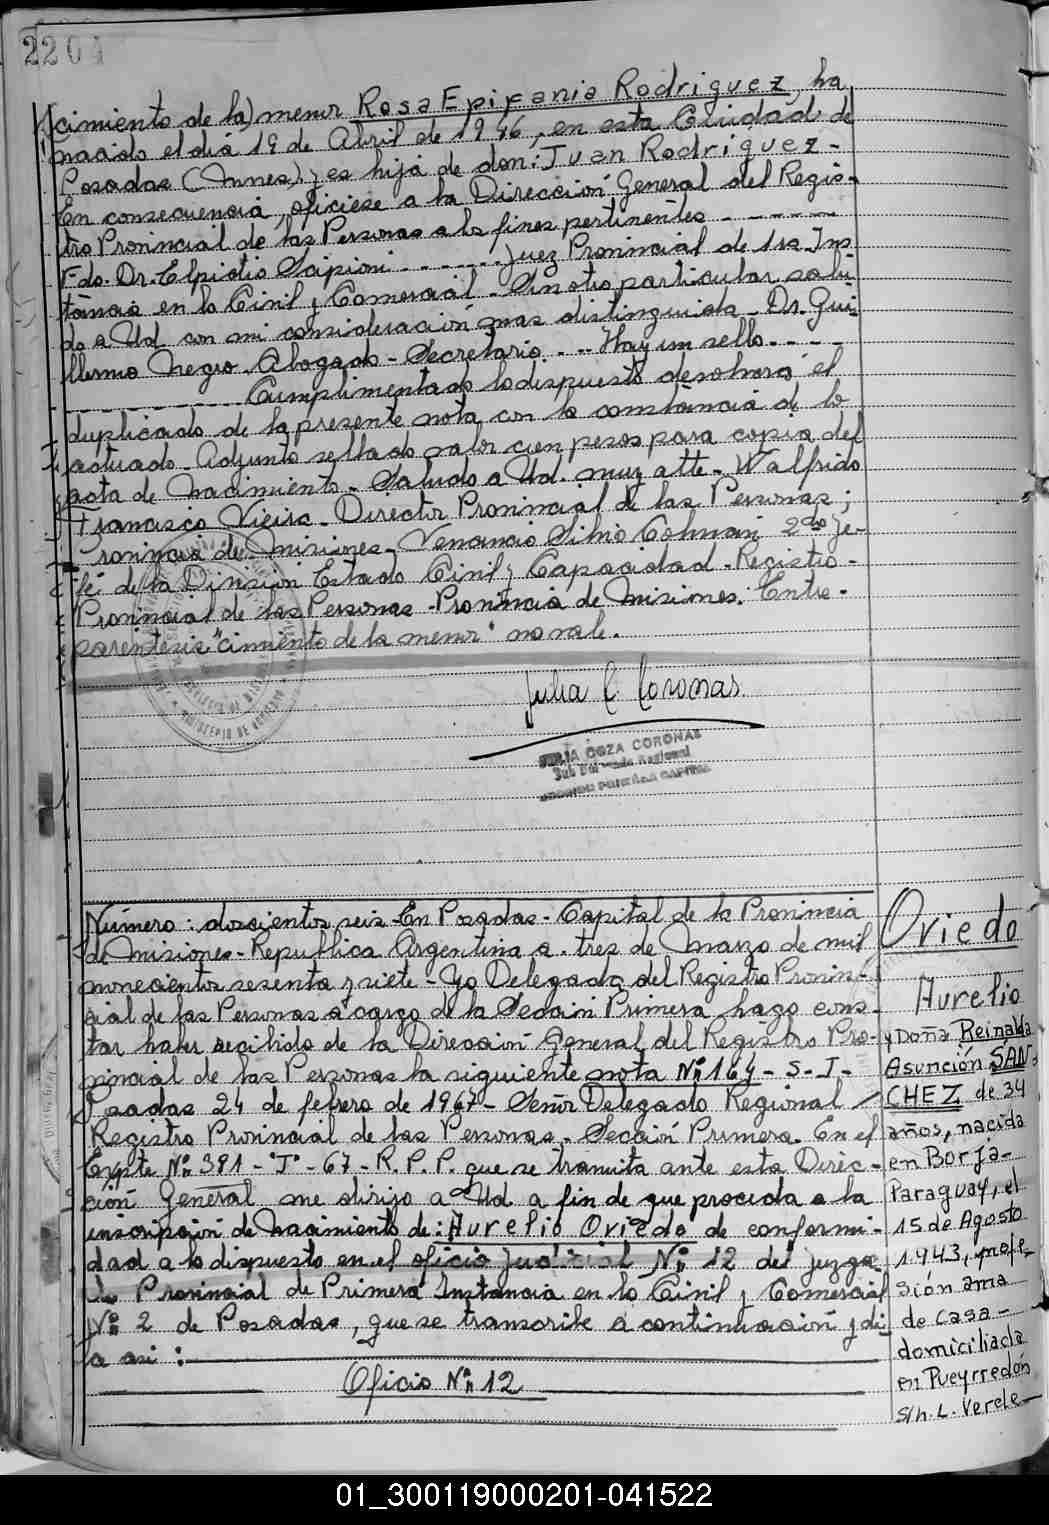 2204
cimiento de la) menor Rosa Epifania Rodriguez, ha
nacido el dia 19 de Abril de 1946, en esta Ciudad de
Posadas (Mnes), y es hija de don: Juan Rodriguez -
En consecuencia, oficiese a la Dirección General del Regis-
tro Provincial de las Personas a los fines pertinentes
Fdo. Dr. Elpidio Scipioni Juez Provincial de 1ra Ins
tancia en lo Civil y Comercial - Sin otro particular salu
do a Ud con mi consideración mas distinguida - Dr. Gui-
llermo Negro. Abogado - Secretario - Hay un sello
Cumplimentado lo dispuesto devolverá el
duplicado de la presente nota con la constancia de lo
actuado - Adjunto sellado valor cien pesos para copia del
acta de Nacimiento - Saludo a Ud. muy atte - Walfrido
Francisco Vieira - Director Provincial de las Personas;
Provincia de Misiones - Venancio Silvio Colman 2do Je-
fe de la División Estado Civil y Capacidad - Registro -
Provincial de las Personas - Provincia de Misiones. Entre -
parentesis "cimiento de la menor" no vale.
Julia C. Coronas
JULIA COZA CORONAS
Sub Delegada Regional
Número: doscientos seis - En Posadas - Capital de la Provincia
de Misiones - Republica Argentina a tres de Marzo de mil
novecientos sesenta y siete - Yo Delegada del Registro Provin-
cial de las Personas a cargo de la Sección Primera hago cons-
tar haber recibido de la Dirección General del Registro Pro-
vincial de las Personas la siguiente nota Nº 164 - S - I -
Posadas 24 de febrero de 1967 - Señor Delegado Regional
Registro Provincial de las Personas - Sección Primera. En el
Expte Nº 391 - "J" - 67 - R. P. P. que se tramita ante esta Direc-
ción General me dirijo a Ud a fin de que proceda a la
inscripción de Nacimiento de: Aurelio Oviedo de conformi-
dad a lo dispuesto en el oficio judicial Nº 12 del juzga
do Provincial de Primera Instancia en lo Civil y Comercial
Nº 2 de Posadas, que se transcribe a continuación y di
ce asi:
Oficio Nº 12
Oviedo
Aurelio
y Doña Reinalda
Asunción SAN-
CHEZ de 34
años, nacida
en Borja-
Paraguay, el
15 de Agosto
1943, profe-
sión ama
de casa -
domiciliada
en Pueyrredón
s/n. L. Verde
01_300119000201-041522